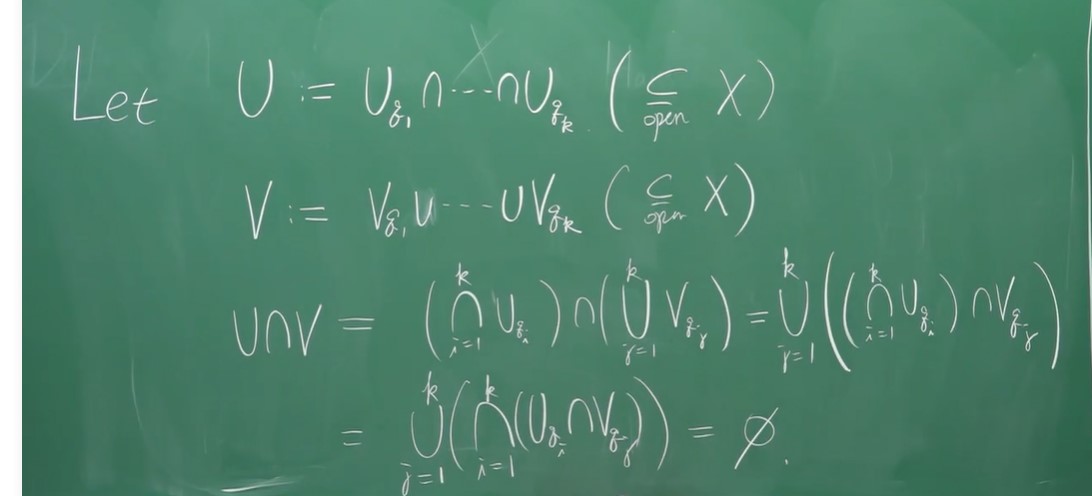 Let U := U_{q_1} ∩ ⋯ ∩ U_{q_k} ( ⊆_{open} X )
V := V_{q_1} ∪ ⋯ ∪ V_{q_k} ( ⊆_{open} X )
U ∩ V = ( ⋂_{i=1}^{k} U_{q_i} ) ∩ ( ⋃_{j=1}^{k} V_{q_j} ) = ⋃_{j=1}^{k} ( ( ⋂_{i=1}^{k} U_{q_i} ) ∩ V_{q_j} )
= ⋃_{j=1}^{k} ( ⋂_{i=1}^{k} ( U_{q_i} ∩ V_{q_j} ) ) = ∅.